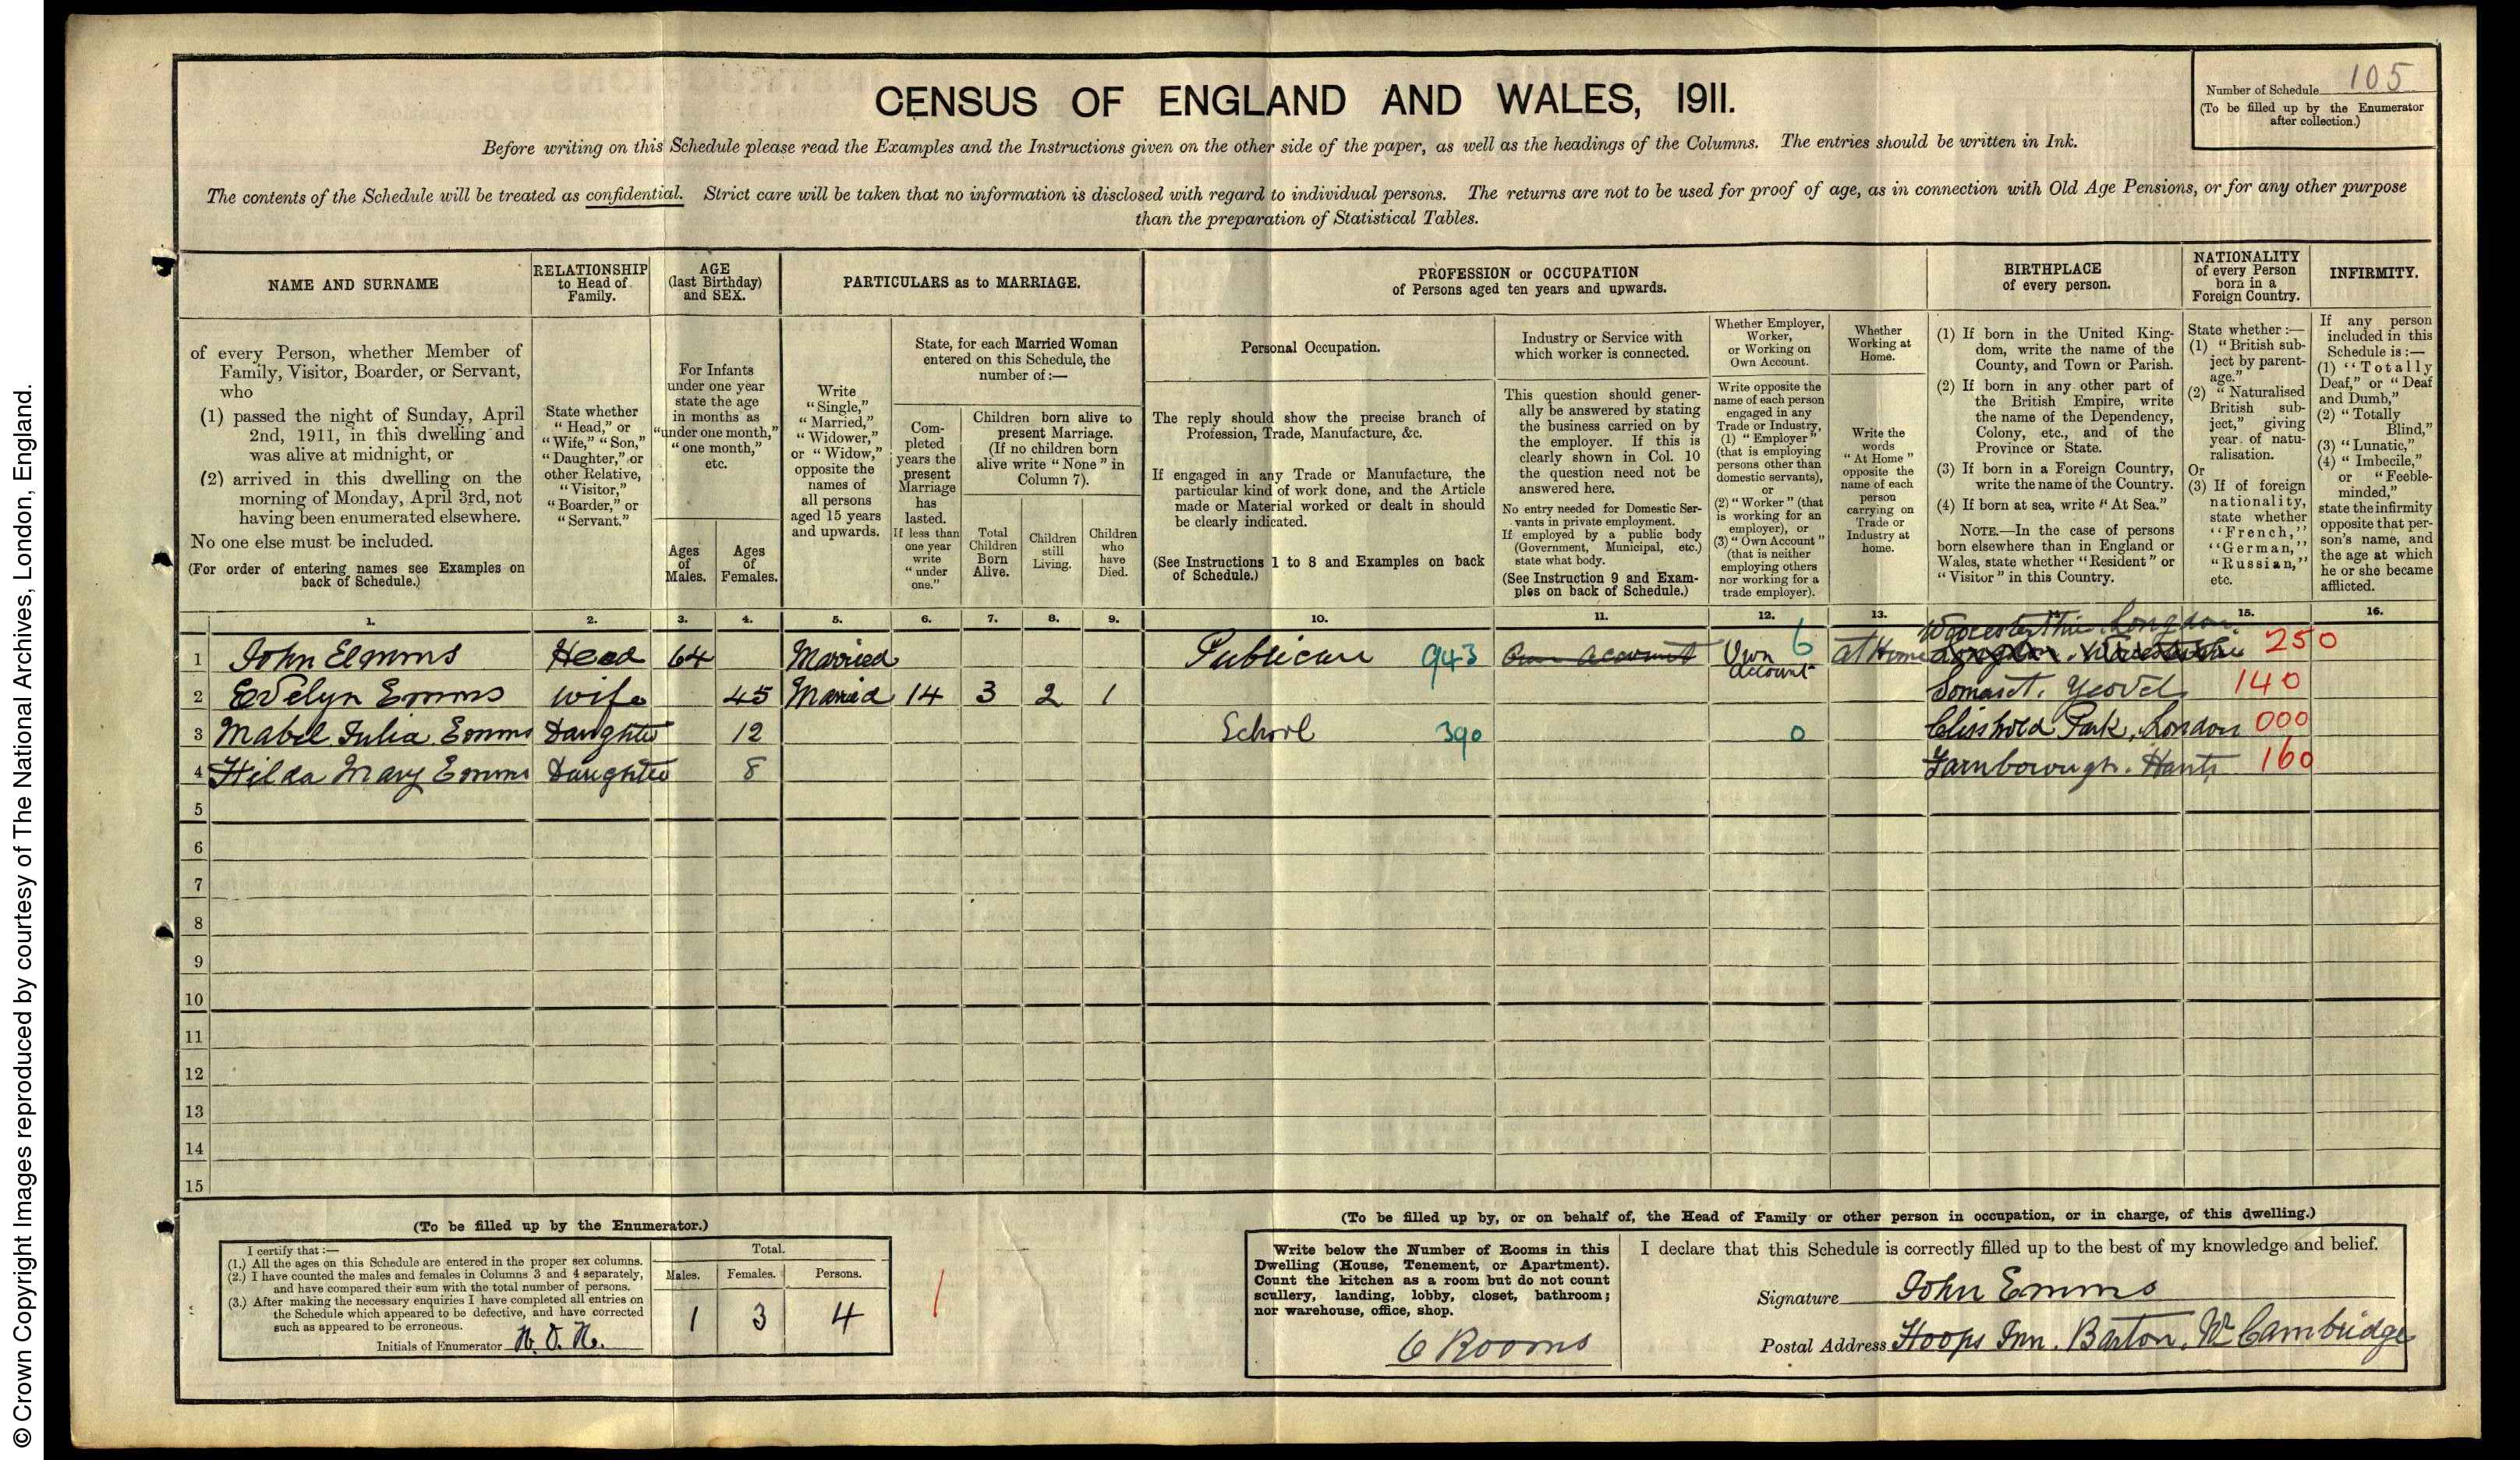 © Crown Copyright Images reproduced by courtesy of The National Archives, London, England.
CENSUS OF ENGLAND AND WALES, 1911.
Number of Schedule 105
(To be filled up by the Enumerator
after collection.)
Before writing on this Schedule please read the Examples and the Instructions given on the other side of the paper, as well as the headings of the Columns. The entries should be written in Ink.
The contents of the Schedule will be treated as confidential. Strict care will be taken that no information is disclosed with regard to individual persons. The returns are not to be used for proof of age, as in connection with Old Age Pensions, or for any other purpose
than the preparation of Statistical Tables.
NAME AND SURNAME
of every Person, whether Member of
Family, Visitor, Boarder, or Servant,
who
(1) passed the night of Sunday, April
2nd, 1911, in this dwelling and
was alive at midnight, or
(2) arrived in this dwelling on the
morning of Monday, April 3rd, not
having been enumerated elsewhere.
No one else must be included.
(For order of entering names see Examples on
back of Schedule.)
RELATIONSHIP
to Head of
Family.
State whether
"Head," or
"Wife," "Son,"
"Daughter," or
other Relative,
"Visitor,"
"Boarder," or
"Servant."
AGE
(last Birthday)
and SEX.
For Infants
under one year
state the age
in months as
"under one month,"
"one month,"
etc.
Ages
of
Males.
Ages
of
Females.
PARTICULARS as to MARRIAGE.
Write
"Single,"
"Married,"
"Widower,"
or "Widow,"
opposite the
names of
all persons
aged 15 years
and upwards.
State, for each Married Woman
entered on this Schedule, the
number of:—
Com-
pleted
years the
present
Marriage
has
lasted.
If less than
one year
write
"under
one."
Children born alive to
present Marriage.
(If no children born
alive write "None" in
Column 7).
Total
Children
Born
Alive.
Children
still
Living.
Children
who
have
Died.
PROFESSION or OCCUPATION
of Persons aged ten years and upwards.
Personal Occupation.
The reply should show the precise branch of
Profession, Trade, Manufacture, &c.
If engaged in any Trade or Manufacture, the
particular kind of work done, and the Article
made or Material worked or dealt in should
be clearly indicated.
(See Instructions 1 to 8 and Examples on back
of Schedule.)
Industry or Service with
which worker is connected.
This question should gener-
ally be answered by stating
the business carried on by
the employer. If this is
clearly shown in Col. 10
the question need not be
answered here.
No entry needed for Domestic Ser-
vants in private employment.
If employed by a public body
(Government, Municipal, etc.)
state what body.
(See Instruction 9 and Exam-
ples on back of Schedule.)
Whether Employer,
Worker,
or Working on
Own Account.
Write opposite the
name of each person
engaged in any
Trade or Industry,
(1) "Employer"
(that is employing
persons other than
domestic servants),
or
(2) "Worker" (that
is working for an
employer), or
(3) "Own Account"
(that is neither
employing others
nor working for a
trade employer).
Whether
Working at
Home.
Write the
words
"At Home"
opposite the
name of each
person
carrying on
Trade or
Industry at
home.
BIRTHPLACE
of every person.
(1) If born in the United King-
dom, write the name of the
County, and Town or Parish.
(2) If born in any other part of
the British Empire, write
the name of the Dependency,
Colony, etc., and of the
Province or State.
(3) If born in a Foreign Country,
write the name of the Country.
(4) If born at sea, write "At Sea."
NOTE.—In the case of persons
born elsewhere than in England or
Wales, state whether "Resident" or
"Visitor" in this Country.
NATIONALITY
of every Person
born in a
Foreign Country.
State whether:—
(1) "British sub-
ject by parent-
age."
(2) "Naturalised
British sub-
ject," giving
year of natu-
ralisation.
Or
(3) If of foreign
nationality,
state whether
"French,"
"German,"
"Russian,"
etc.
INFIRMITY.
If any person
included in this
Schedule is:—
(1) "Totally
Deaf," or "Deaf
and Dumb,"
(2) "Totally
Blind,"
(3) "Lunatic,"
(4) "Imbecile,"
or "Feeble-
minded,"
state the infirmity
opposite that per-
son's name, and
the age at which
he or she became
afflicted.
1. 2. 3. 4. 5. 6. 7. 8. 9. 10. 11. 12. 13. 14. 15. 16.
Worcestershire. Longdon
1 John Emms Head 64 Married Publican 943 Own account Own Account 6 at Home Longdon. Worcestershire 250
2 Evelyn Emms Wife 45 Married 14 3 2 1 Somerset. Yeovil 140
3 Mabel Julia Emms Daughter 12 School 390 0 Clisshold Park, London 000
4 Hilda Mary Emms Daughter 8 Farnborough. Hants 160
5
6
7
8
9
10
11
12
13
14
15
(To be filled up by the Enumerator.)
I certify that:—
(1.) All the ages on this Schedule are entered in the proper sex columns.
(2.) I have counted the males and females in Columns 3 and 4 separately,
and have compared their sum with the total number of persons.
(3.) After making the necessary enquiries I have completed all entries on
the Schedule which appeared to be defective, and have corrected
such as appeared to be erroneous.
Initials of Enumerator
Total.
Males. Females. Persons.
1 3 4
(To be filled up by, or on behalf of, the Head of Family or other person in occupation, or in charge, of this dwelling.)
Write below the Number of Rooms in this
Dwelling (House, Tenement, or Apartment).
Count the kitchen as a room but do not count
scullery, landing, lobby, closet, bathroom;
nor warehouse, office, shop.
6 Rooms
I declare that this Schedule is correctly filled up to the best of my knowledge and belief.
Signature John Emms
Postal Address Hoops Inn. Barton. Nr Cambridge